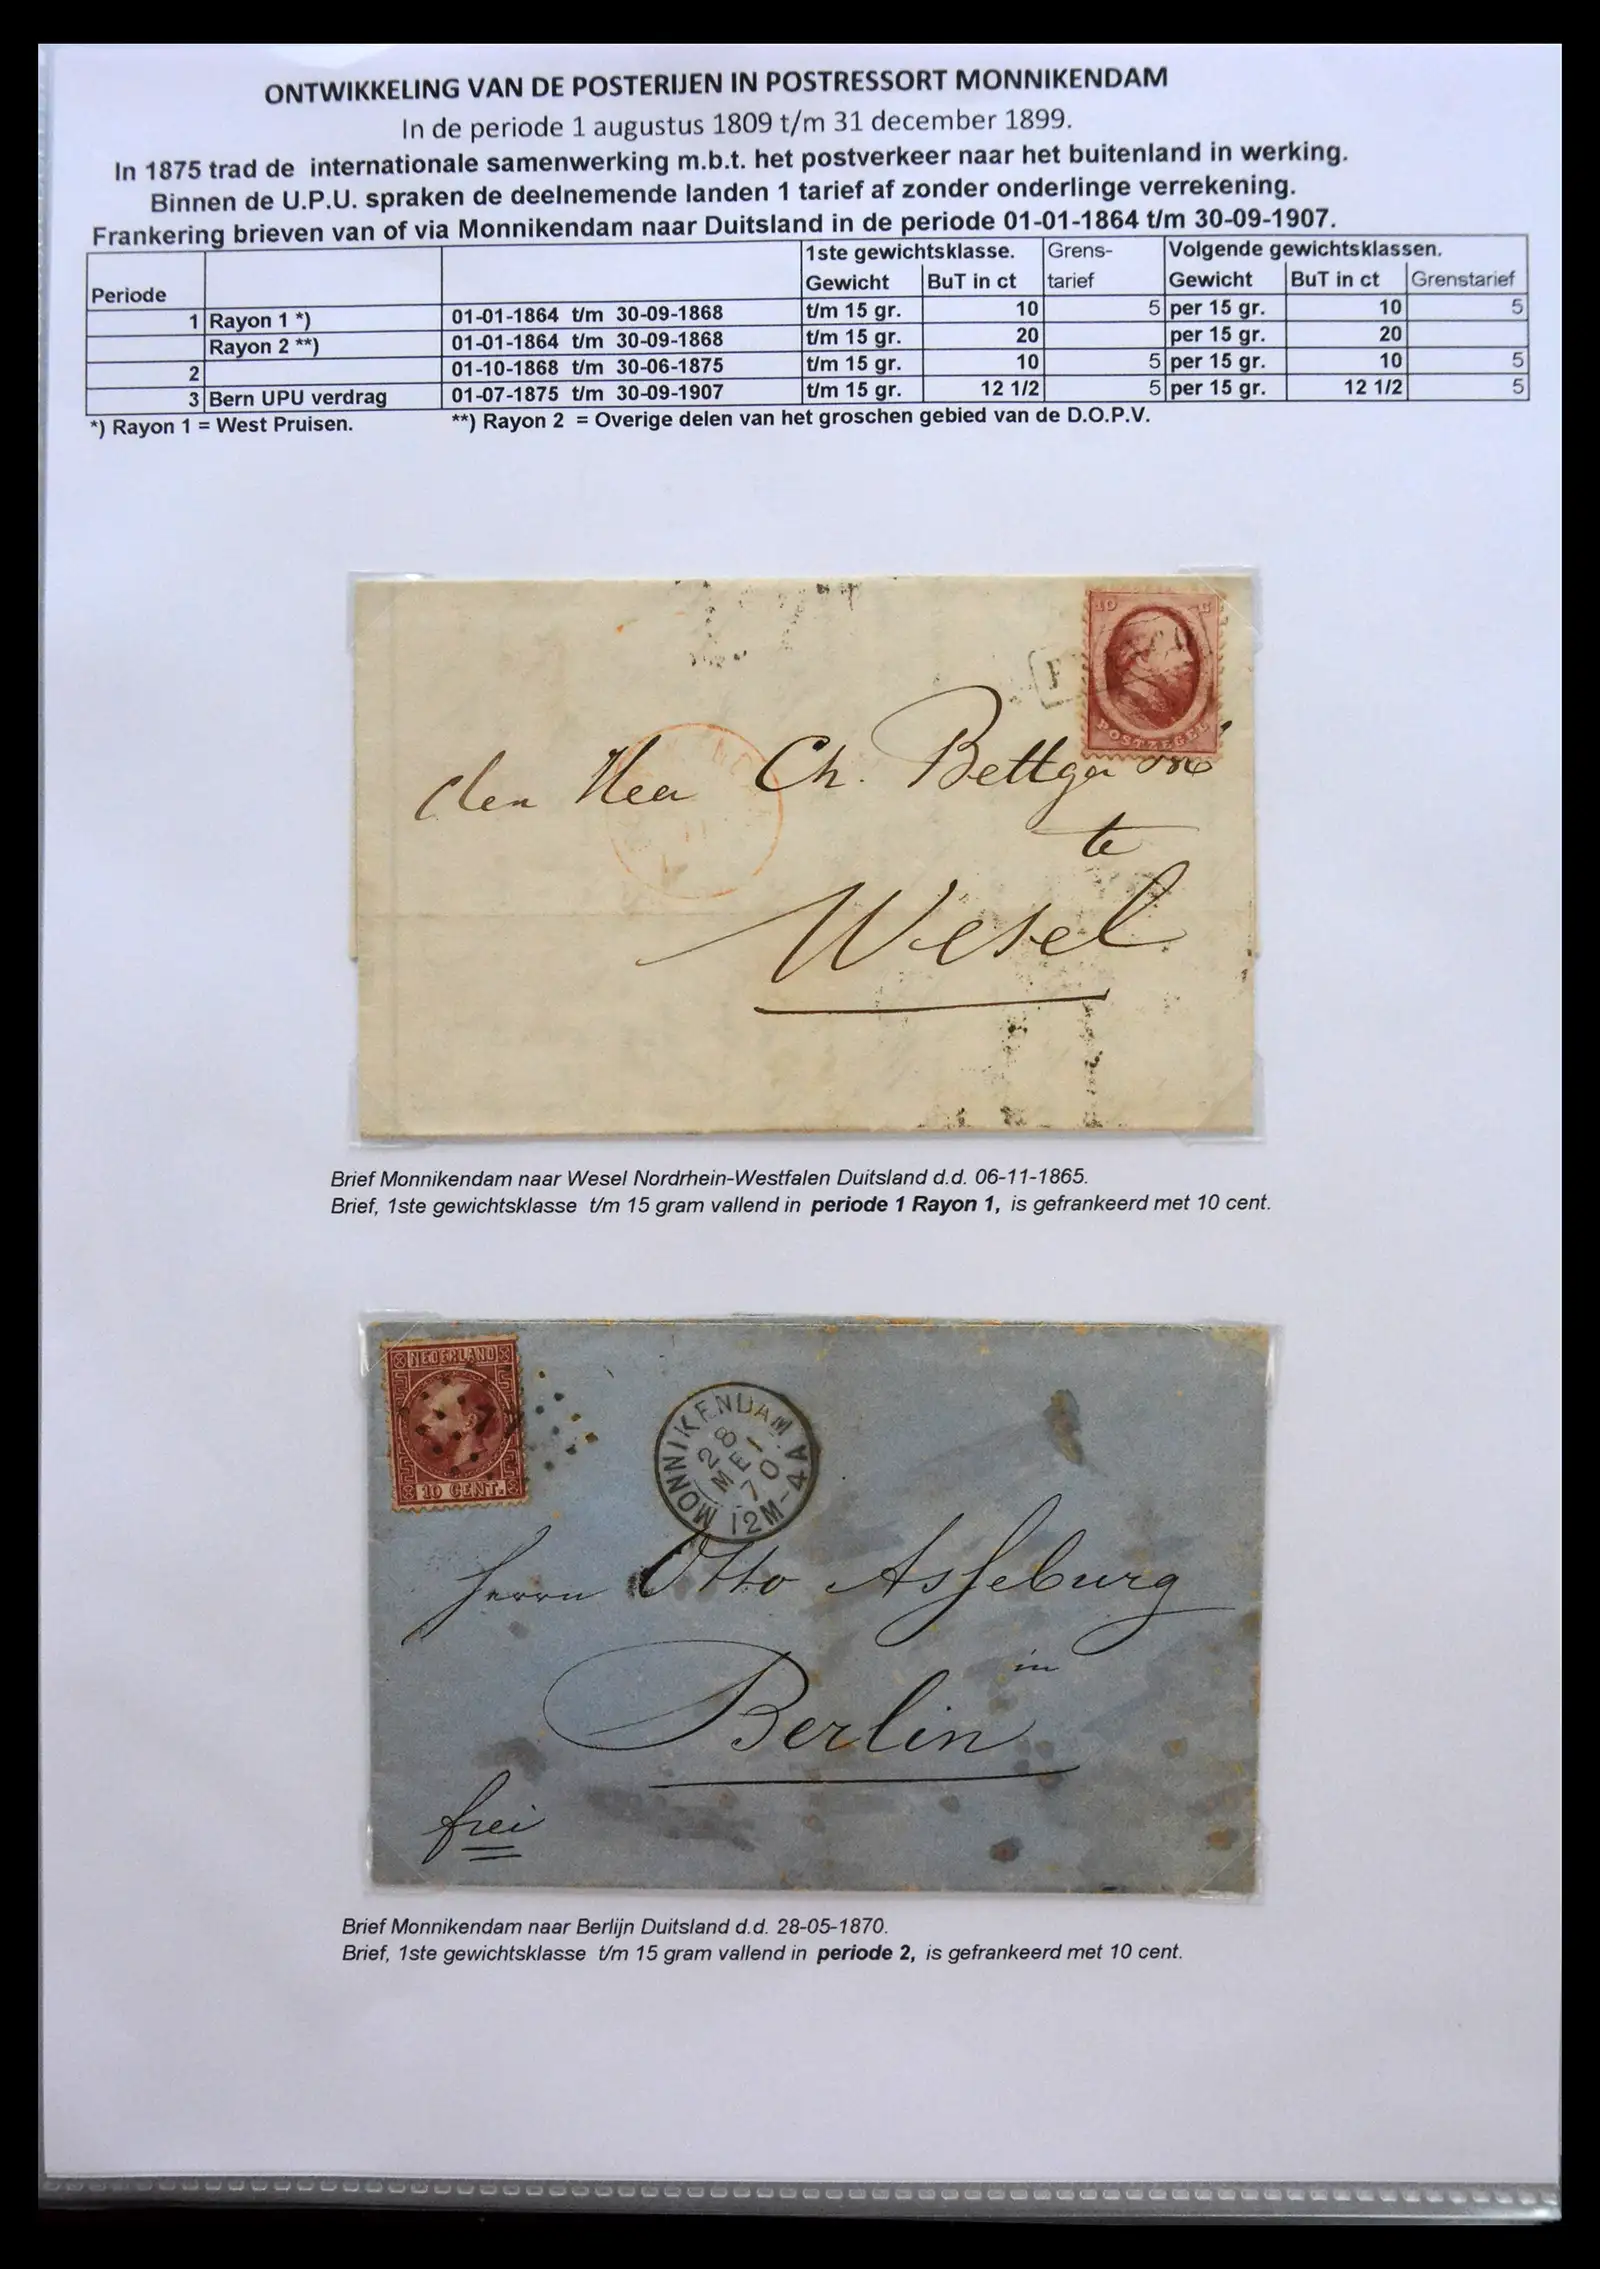 ONTWIKKELING VAN DE POSTERIJEN IN POSTRESSORT MONNIKENDAM
In de periode 1 augustus 1809 t/m 31 december 1899.
In 1875 trad de internationale samenwerking m.b.t. het postverkeer naar het buitenland in werking.
Binnen de U.P.U. spraken de deelnemende landen 1 tarief af zonder onderlinge verrekening.
Frankering brieven van of via Monnikendam naar Duitsland in de periode 01-01-1864 t/m 30-09-1907.
1ste gewichtsklasse. Grens- Volgende gewichtsklassen.
Periode Gewicht BuT in ct tarief Gewicht BuT in ct Grenstarief
1 Rayon 1 *) 01-01-1864 t/m 30-09-1868 t/m 15 gr. 10 5 per 15 gr. 10 5
Rayon 2 **) 01-01-1864 t/m 30-09-1868 t/m 15 gr. 20 per 15 gr. 20
2 01-10-1868 t/m 30-06-1875 t/m 15 gr. 10 5 per 15 gr. 10 5
3 Bern UPU verdrag 01-07-1875 t/m 30-09-1907 t/m 15 gr. 12 1/2 5 per 15 gr. 12 1/2 5
*) Rayon 1 = West Pruisen. **) Rayon 2 = Overige delen van het groschen gebied van de D.O.P.V.
10 C
POSTZEGEL
den Heer Ch. Bettger
te
Wesel
Brief Monnikendam naar Wesel Nordrhein-Westfalen Duitsland d.d. 06-11-1865.
Brief, 1ste gewichtsklasse t/m 15 gram vallend in periode 1 Rayon 1, is gefrankeerd met 10 cent.
NEDERLAND
10 CENT.
MONNIKENDAM
28
MEI
70
12M-4A
Herrn Otto Asseburg
in
Berlin
frei
Brief Monnikendam naar Berlijn Duitsland d.d. 28-05-1870.
Brief, 1ste gewichtsklasse t/m 15 gram vallend in periode 2, is gefrankeerd met 10 cent.